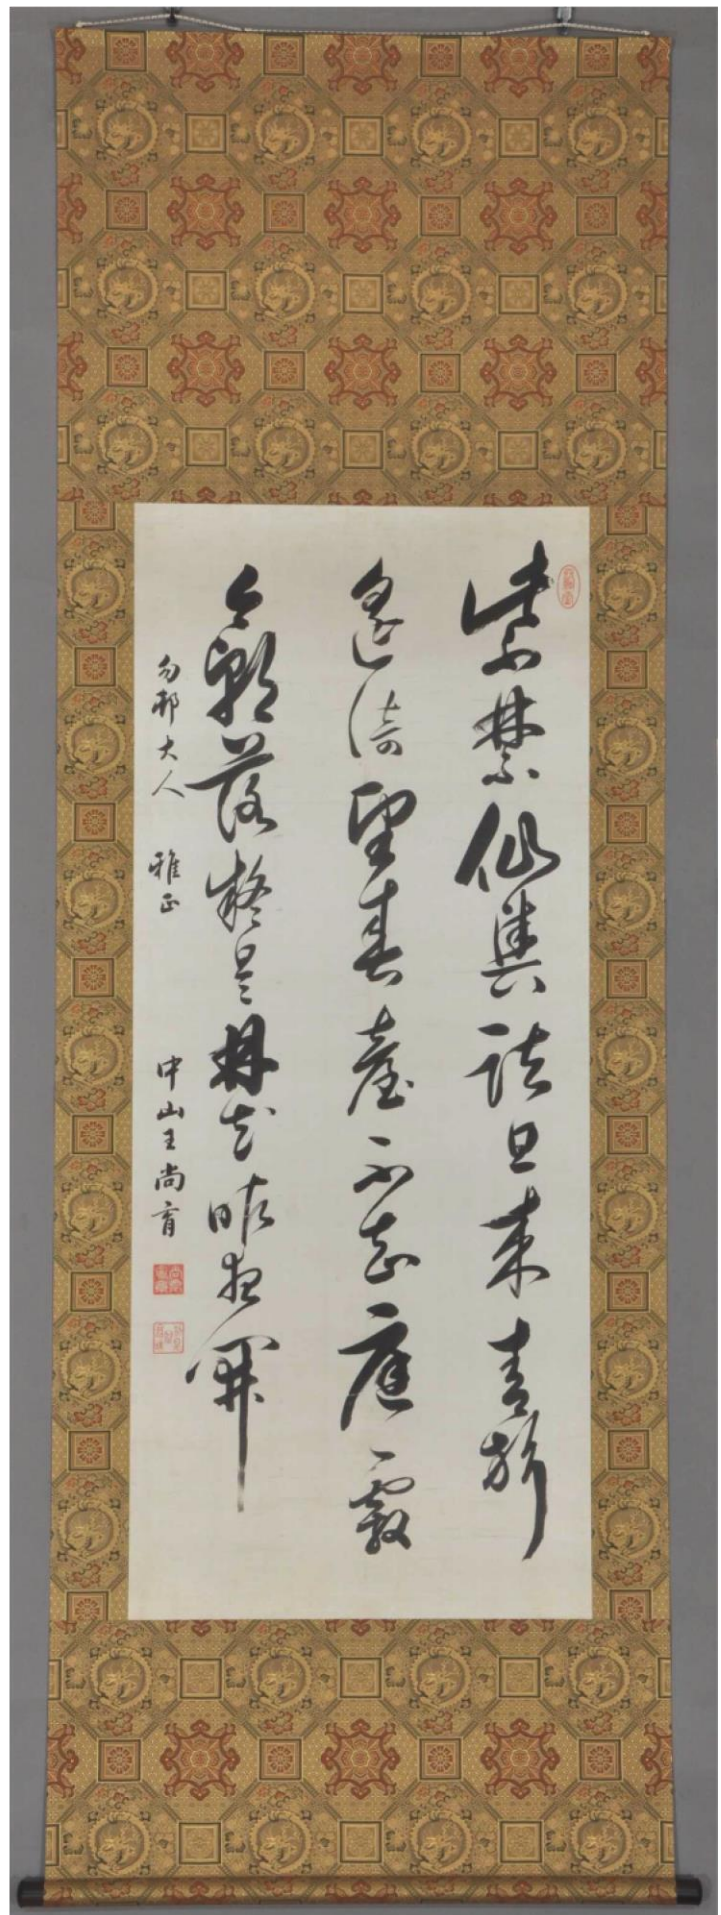 紫禁仙輿詰旦来青旂
遥倚望春臺不知庭霰
今朝落疑是林花昨夜開
勿邨大人 雅正 中山王尚育